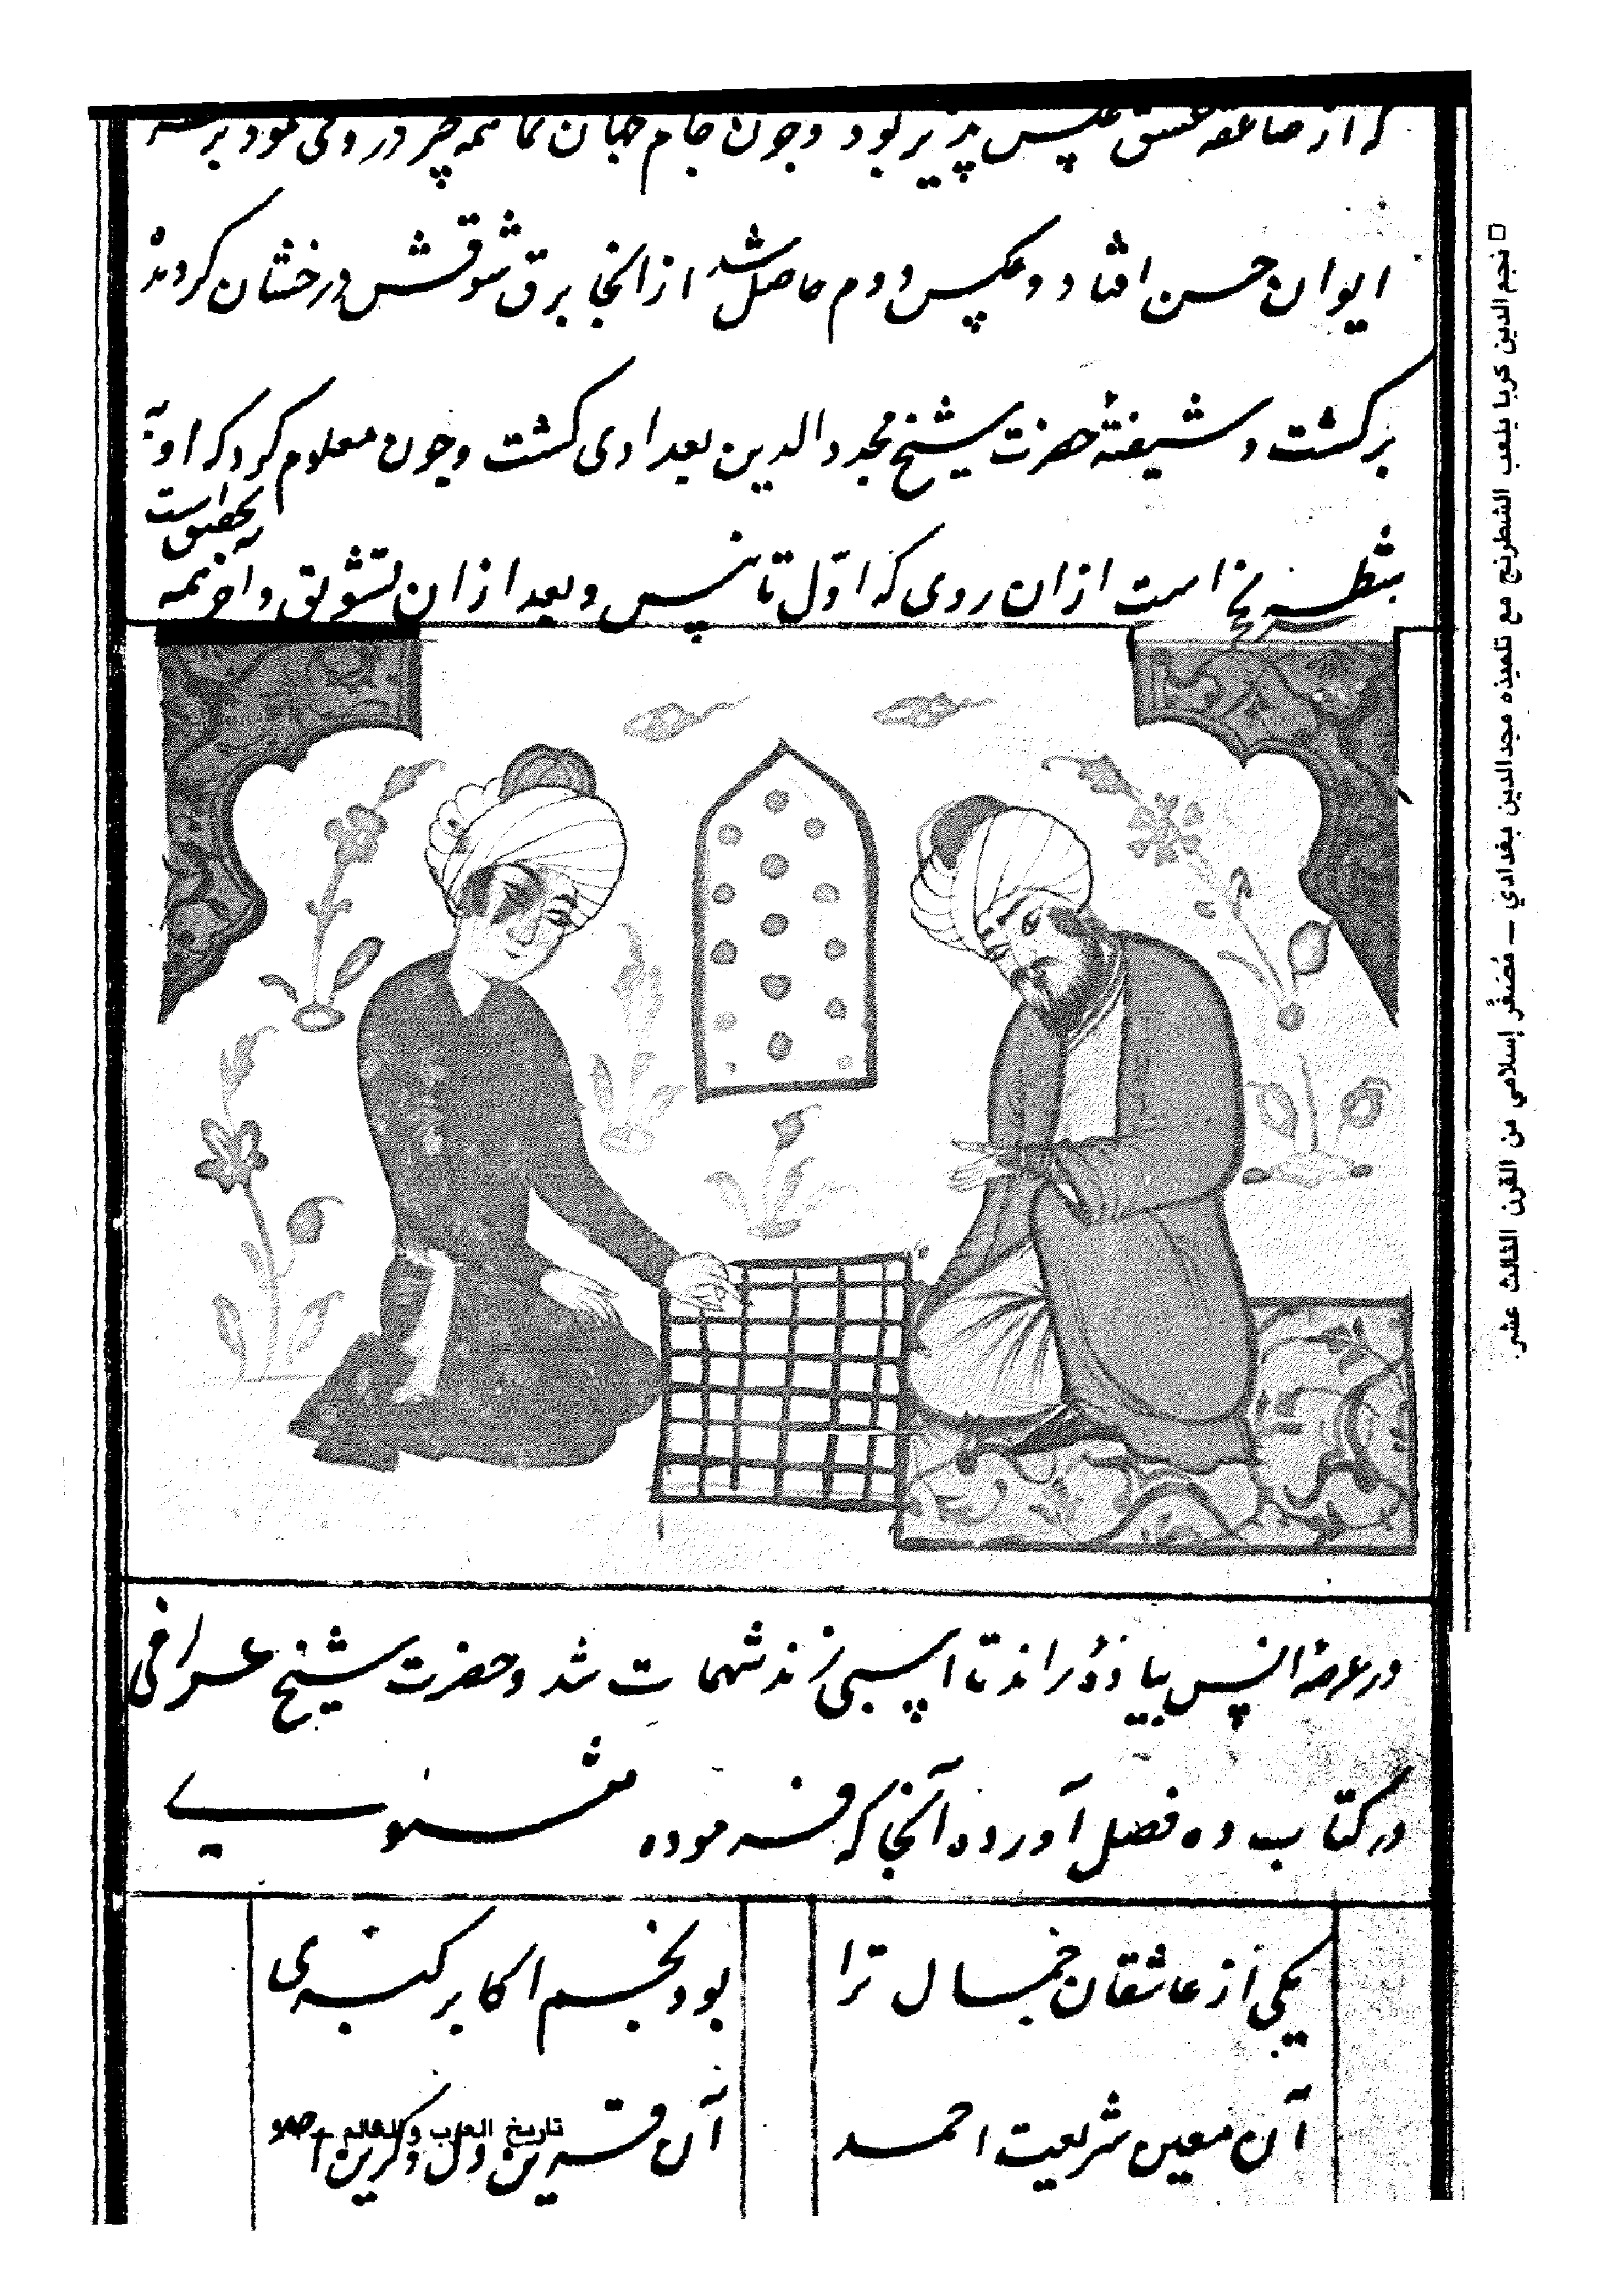 که از صاعقه عشق عکس پذیر بود و چون جام جهان نما همه چیز در وی نمود بر
ایوان حسن افتاد و عکس دوم حاصل شد از انجا برق شوقش درخشان کردند
برکشت و شیفتهٔ حضرت شیخ مجد الدین بغدادی کشت و چون معلوم کرد که او
بشطرنج است ازان روی که اوّل تا نپس و بعد ازان تشویق و اخر همه
بحقیق است
در عرصهٔ انس پیادهٔ راند تا اسپی زند شهمات شد و حضرت شیخ عراقی
در کتاب ده فصل آورده آنجا که فرموده مثنوی
یکی از عاشقان جمال ترا
بود نجم اکابر کبری
آن معین شریعت احمد
آن قرین دل و کزین احد
□ نجم الدين كربا يلعب الشطرنج مع تلميذه مجدالدين بغدادي — مُصَغَّر إسلامي من القرن الثالث عشر.
تاريخ العرب والعالم —